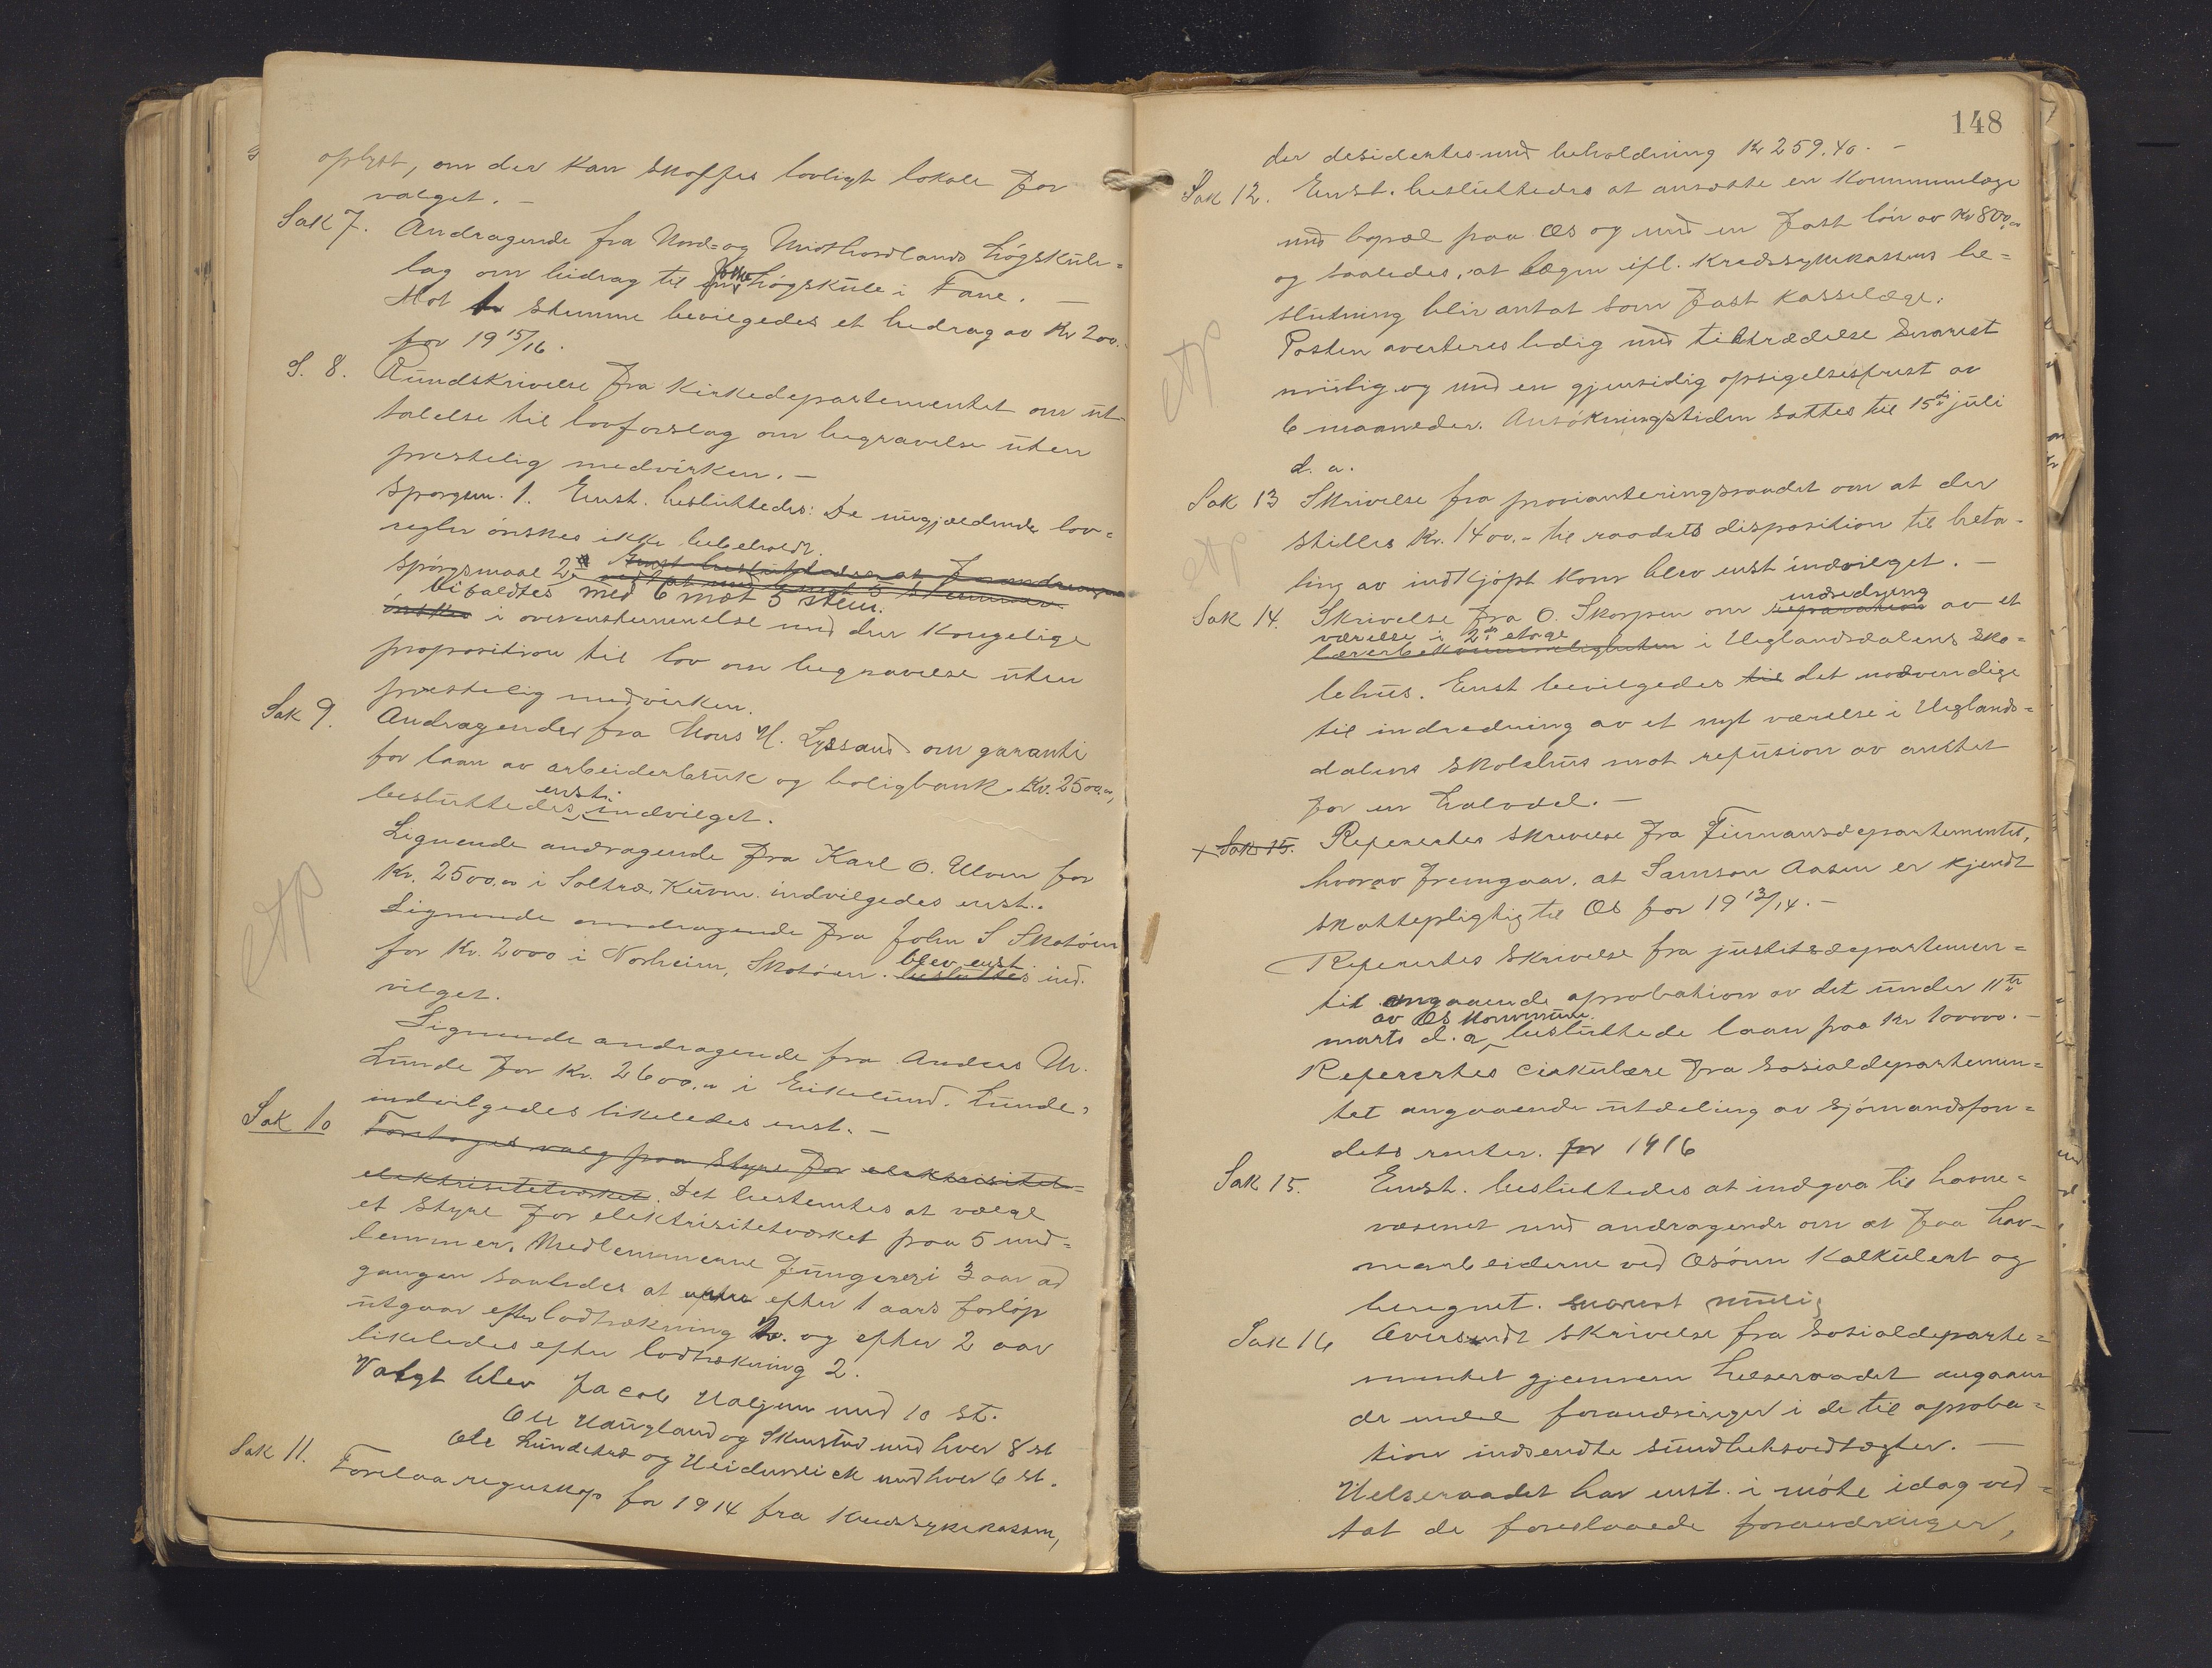 oplyst, om der kan skaffes lovligt lokale for
valget. —
Sak 7. Andragende fra Nord- og Midthordlands Høgskule-
lag om bidrag til Folkehøgskule i Fane. —
Mot 1 stemme bevilgedes et bidrag av Kr 200.-
for 19 15/16.
S. 8. Rundskrivelse fra Kirkedepartementet om ut-
talelse til lovforslag om begravelse uten
prestelig medvirken. —
Spørgsm. 1. Enst. besluttedes: De nugjældende lov-
regler ønskes ikke bibeholdt.
Spørgsmaal 2.
bifaldtes med 6 mot 5 stem.
ønskes i overenstemmelse med den Kongelige
proposition til lov om begravelse uten
prestelig medvirken.
Sak 9. Andragender fra Mons H. Lyssand om garanti
for laan av arbeiderbruk og boligbank. Kr. 2500.00,
besluttedes enst. indvilget.
Lignende andragende fra Karl O. Ulven for
Kr. 2500.00 i Soltræ, Kuven. indvilgedes enst..
Lignende andragende fra John S Skotøen
for Kr. 2000 i Norheim, Skotøen. blev enst. besluttes ind-
vilget.
Lignende andragende fra Anders Nr.
Lunde for Kr. 2600.00 i Eikelund. Lunde,
indvilgedes likeledes enst. —
Sak 10 Foretoges valg paa Styre for elektrisitets-
elektrisitetverket. Det bestemtes at vælge
et Styre for elektrisitetverket paa 5 med-
lemmer. Medlemmerne fungerer i 3 aar ad
gangen saaledes at efter 1 aars forløp
utgaar efter lodtrækning 2. og efter 2 aar
likeledes efter lodtrækning 2.
Valgt blev Jacob Haljem med 10 st.
Ole Haugland og Skeistad med hver 8 st
Ole Lundetræ og Heidunslick med hver 6 st.
Sak 11. Forelaa regnskap for 1914 fra Kredssykekassen,
etp
148
der desidertes med beholdning Kr 259.40. —
Sak 12. Enst. besluttedes at ansætte en Kommunelæge
med bopæl paa Os og med en fast løn av Kr 800.00
og saaledes, at lægen ifl. Kredssykekassens be-
slutning blir antat som fast kasselæge.
Posten averteres ledig med tiltrædelse snarest
mulig og med en gjensidig opsigelsesfrist av
6 maaneder. Ansøkningstiden sattes til 15de juli
d. a.
etp
Sak 13 Skrivelse fra provianteringsraadet om at der
stilles Kr. 1400.- til raadets disposition til beta-
ling av indkjøpt korn blev enst indvilget. —
etp
Sak 14. Skrivelse fra O. Skorpen om reparation indredning av et
værelse i 2den etage
lærerbekvemmeligheten i Ueglandsdalens sko-
lehus. Enst bevilgedes til det nødvendige
til indredning av et nyt værelse i Ueglands-
dalens skolehus mot refusion av amtet
for en halvdel. —
+ Sak 15. Refererteds skrivelse fra Finansdepartementet,
hvorav fremgaar, at Samson Aasen er kjendt
skattepligtig til Os for 19 13/14. —
Refererteds skrivelse fra justitsdepartemen-
tet angaaende aprobation av det under 11te
marts d. a. av Os Kommune besluttede laan paa Kr 100000. —
Refererteds cirkulære fra Sosialdepartemen-
tet angaaende utdeling av sjømandsfon-
dets renter. for 1916
Sak 15. Enst. besluttedes at indgaa til havne-
væsenet med andragende om at faa hav-
nearbeiderne ved Osøren Kalkulert og
beregnet. snarest mulig
Sak 16 Oversendt skrivelse fra Sosialdeparte-
mentet gjennem helseraadet angaaen-
de endel forandringer i de til aproba-
tion indsendte sundhetsvedtægter. —
Helseraadet har enst. i møte idag ved-
tat de foreslaaede forandringer,